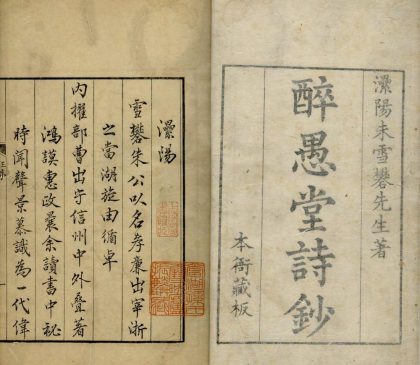 灤陽朱雪礬先生著
醉愚堂詩鈔
本衙藏板
灤陽
雪礬朱公以名孝廉出宰浙
之當湖旋由循卓
內擢部曹出守信州中外疊著
鴻謨惠政曩余讀書中祕
時聞聲景慕識為一代偉